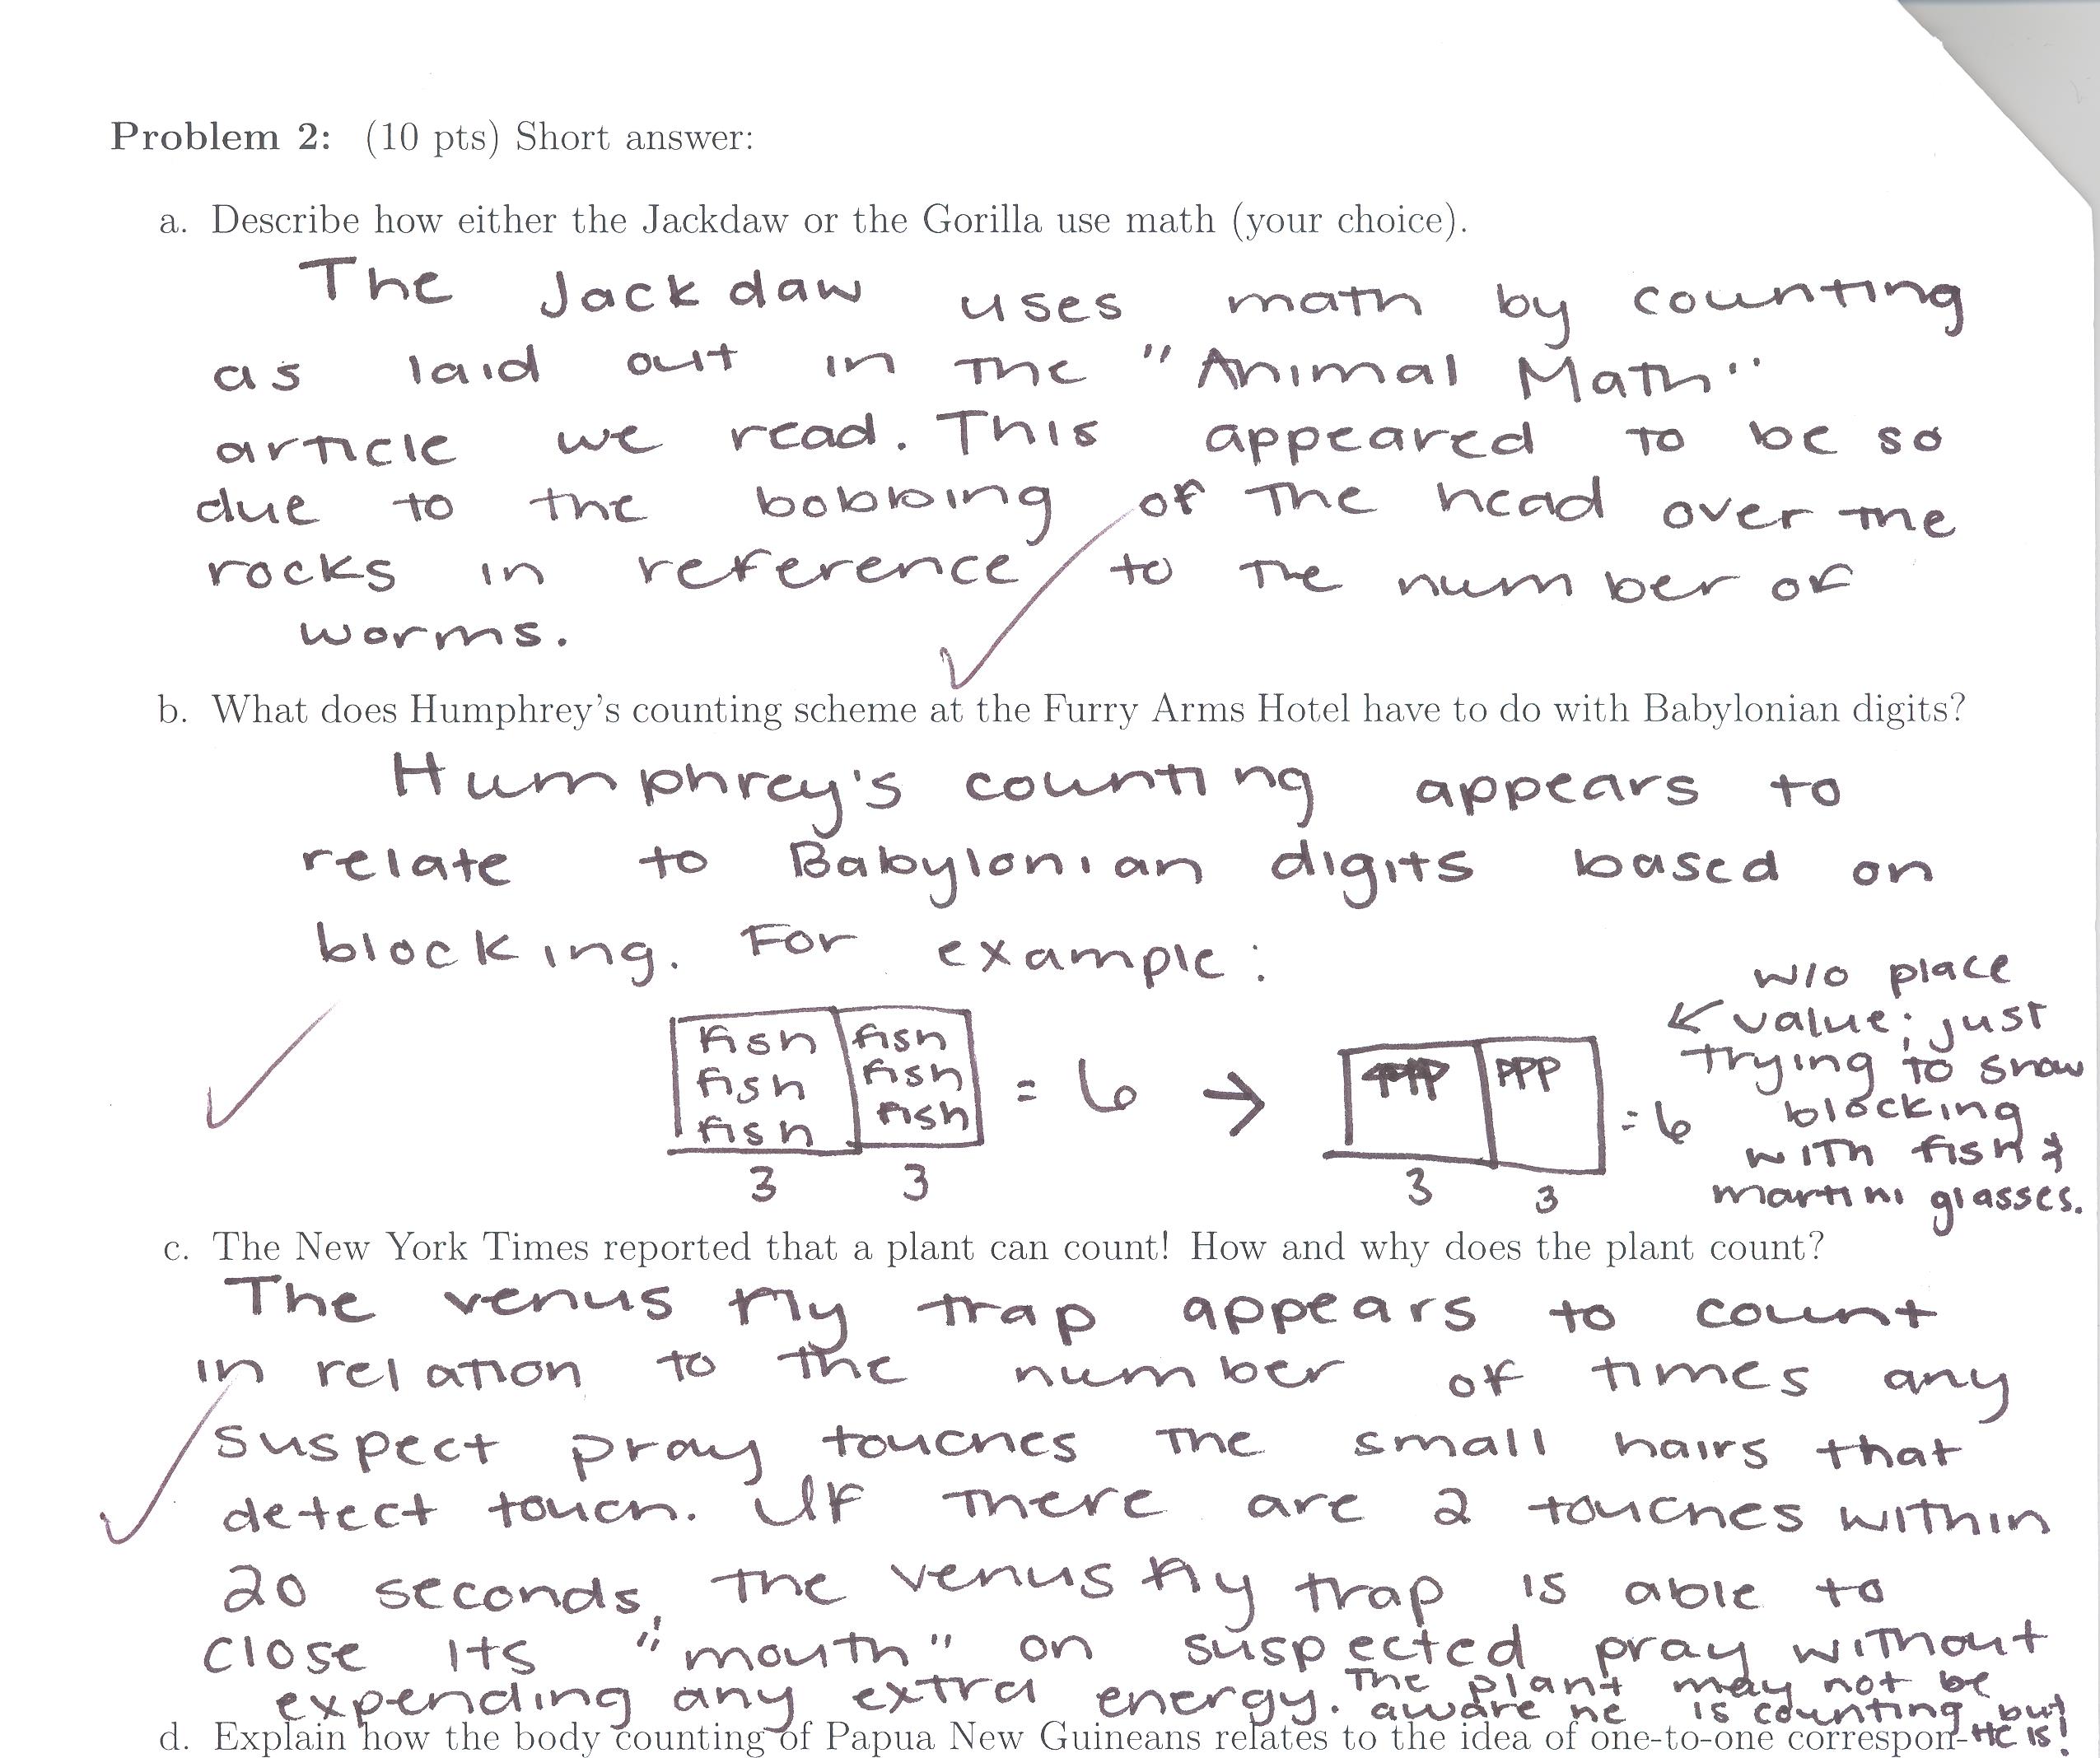 Problem 2: (10 pts) Short answer:
a. Describe how either the Jackdaw or the Gorilla use math (your choice).
The Jackdaw uses math by counting
as laid out in the "Animal Math"
article we read. This appeared to be so
due to the bobbing of the head over the
rocks in reference to the number of
worms.
b. What does Humphrey's counting scheme at the Furry Arms Hotel have to do with Babylonian digits?
Humphrey's counting appears to
relate to Babylonian digits based on
blocking. For example:
fish fish
fish fish
fish fish
3 3
= 6 →
PPP
3 3
= 6
← w/o place
value; just
trying to show
blocking
with fish &
martini glasses.
c. The New York Times reported that a plant can count! How and why does the plant count?
The venus fly trap appears to count
in relation to the number of times any
suspect pray touches the small hairs that
detect touch. If there are 2 touches within
20 seconds, the venus fly trap is able to
close its "mouth" on suspected pray without
expending any extra energy. The plant may not be
aware he is counting, but
HE IS!
d. Explain how the body counting of Papua New Guineans relates to the idea of one-to-one correspon-